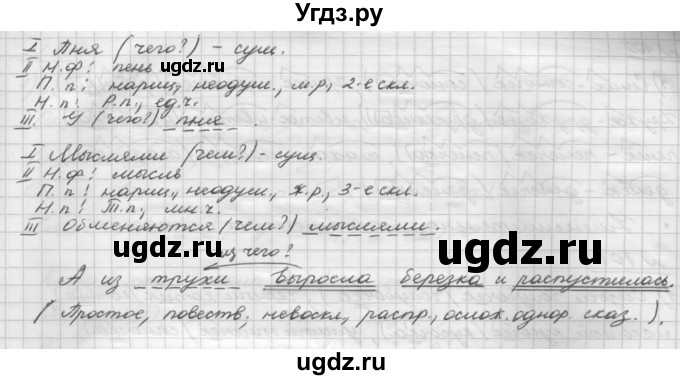 Угдз.ру
I Пня (чего?) - сущ.
II Н.ф: пень
П.п: нариц., неодуш., м.р., 2-е скл.
Н.п: Р.п., ед.ч.
III У (чего?) пня.
I Мыслями (чем?) - сущ.
II Н.ф: мысль
П.п: нариц., неодуш., ж.р., 3-е скл.
Н.п: Т.п., мн.ч.
III Обменяются (чем?) мыслями.
из чего?
А из трухи выросла березка и распустилась.
(Простое, повеств., невоскл., распр., ослож. однор. сказ.).
uгдz.ru
uгдz.ru
uгдz.ru
uгдz.ru